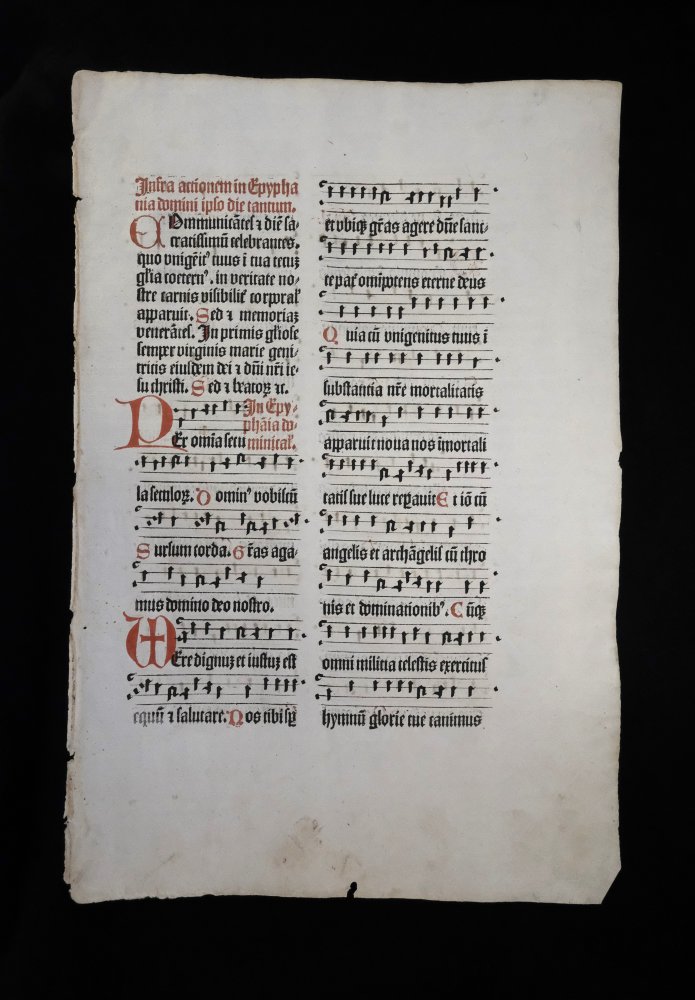 Infra actionem in Epypha
nia domini ipso die tantum.
Communicātes ⁊ diē sa⸗
cratissimū celebrantes.
quo vnigeītꝰ tuus ī tua tecuꝫ
gl̄ia coeternꝰ. in veritate no⸗
stre carnis visibilit̄ corporal̄
apparuit. Sed ⁊ memoriaꝫ
venerātes. In primis gl̄iose
semper virginis marie geni⸗
tricis eiusdem dei ⁊ dn̄i nr̄i ie⸗
su christi. Sed ⁊ beatoꝝ ⁊c.
In Epy⸗
phāia do⸗
Per om̄ia secu minical̄.
la seculoꝝ. Dominꝰ vobiscū
Sursum corda. Gr̄as aga⸗
mus domino deo nostro.
Vere dignuꝫ et iustuꝫ est
equū ⁊ salutare. Nos tibi sꝑ
et vbiqꝫ gr̄as agere dn̄e sanc⸗
te pat̄ om̄ipotens eterne deus
Quia cū vnigenitus tuus ī
substantia nr̄e mortalitatis
apparuit noua nos īmortali
tatis sue luce reꝑauit Et iō cū
angelis et archāgelis cū thro
nis et dominationibꝰ. Cūqꝫ
omni militia celestis exercitus
hymnū glorie tue canimus